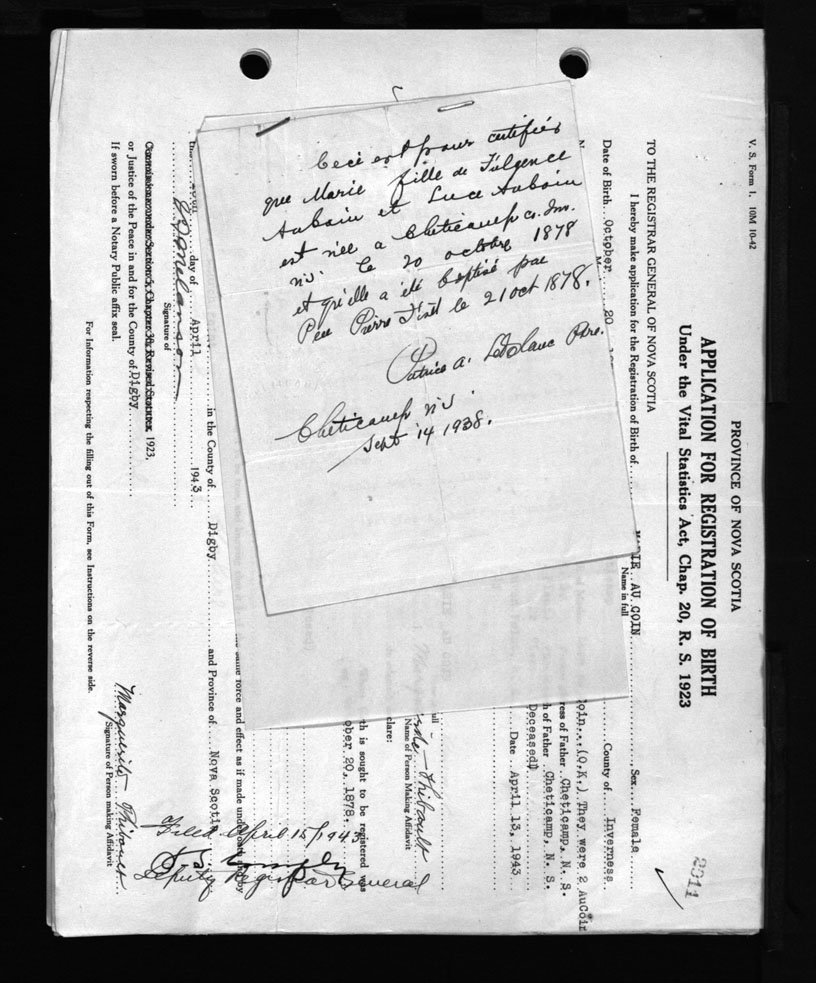 Ceci est pour certifier
que Marie fille de Fulgence
Auboin et Luce Auboin
est née a Cheticamp Co. Inv.
N.S. le 20 octobre 1878
et qu'elle a été baptisé par
Peu Pierre le 21 oct 1878.
Patrice A. LeBlanc Ptre.
Cheticamp N.S.
Sept 14 1938.
V. S. Form 1. 10M 10-42
PROVINCE OF NOVA SCOTIA
APPLICATION FOR REGISTRATION OF BIRTH
Under the Vital Statistics Act, Chap. 20, R. S. 1923
2011
TO THE REGISTRAR GENERAL OF NOVA SCOTIA
I hereby make application for the Registration of Birth of MARIE AU COIN Sex Female
Name in full
Date of Birth October 20 County of Inverness
coin (O.K.) They were 2 AuCoin
ress of Father Cheticamp, N. S.
h of Father Cheticamp, N. S.
Deceased)
Date April 13, 1943
Thibault
Name of Person Making Affidavit
clare:
th is sought to be registered was
ober 20, 1878.
same force and effect as if made under oath
in the County of Digby and Province of Nova Scotia
day of April 1943
Signature of
Commissioner under Section 5, Chapter 38, Revised Statutes, 1923,
or Justice of the Peace in and for the County of Digby
If sworn before a Notary Public affix seal.
Marguerite Thibault
Signature of Person making Affidavit
Filed April 15/1943
Deputy Registrar General
For Information respecting the filling out of this Form, see Instructions on the reverse side.